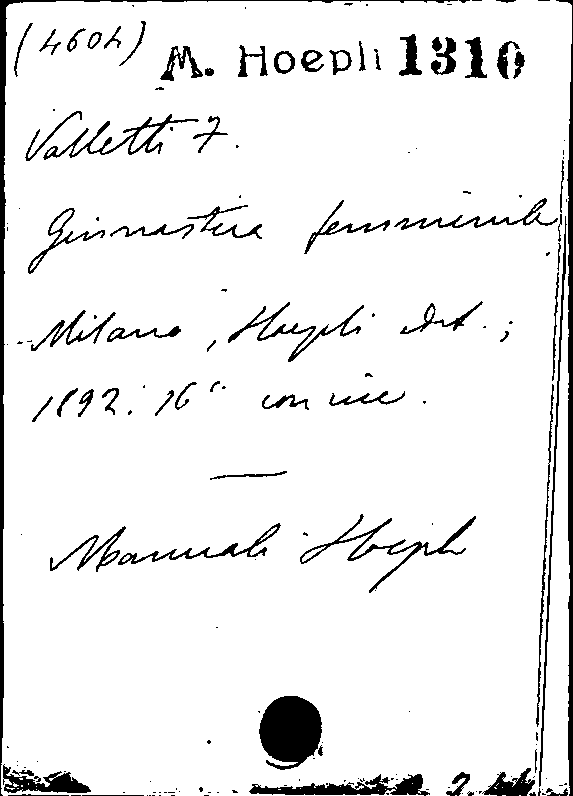 (4604) M. Hoepli 1310
Valletti F.
Ginnastica femminile
Milano, Hoepli edit.;
1892. 16° con inc.
Manuali Hoepli